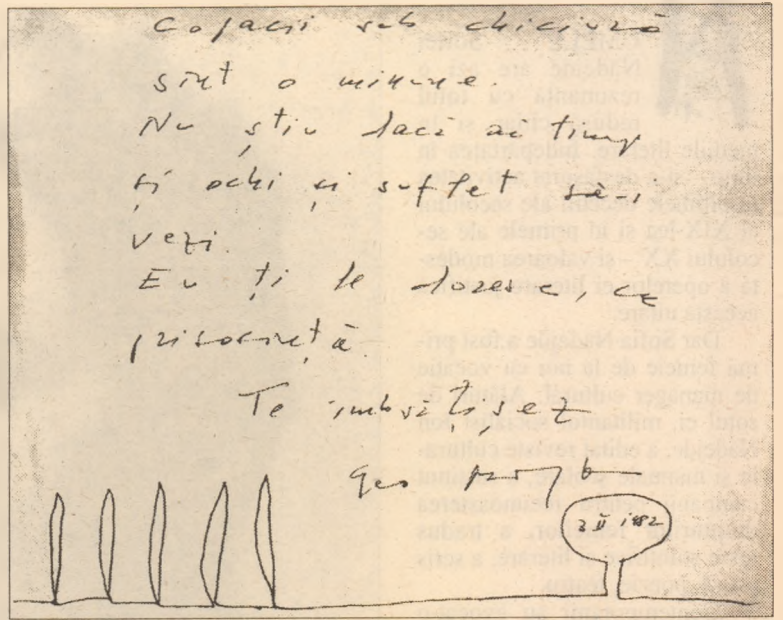 Copacii sub chiciură
sînt o minune.
Nu știu dacă ai timp
și ochi și suflet să-i
vezi.
Eu ți le doresc, cu
prisosință
Te îmbrățișez
Geo
3 II 1982